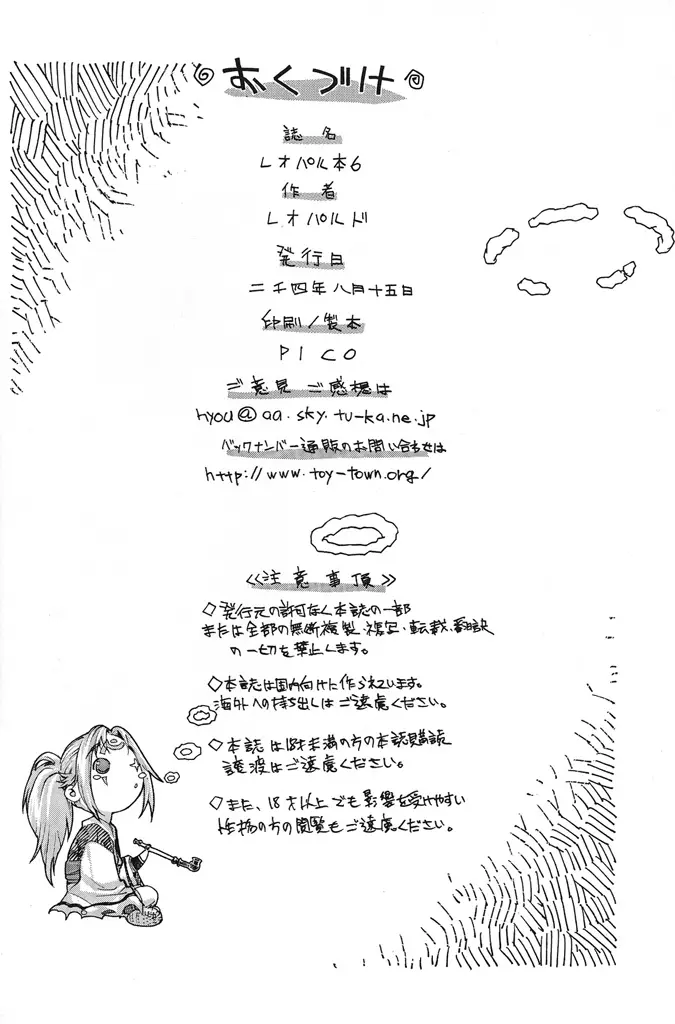 おくづけ
誌名
レオパル本6
作者
レオパルド
発行日
二千四年八月十五日
印刷/製本
PICO
ご意見 ご感想は
hyou@aa.sky.tu-ka.ne.jp
バックナンバー通販のお問い合せは
http://www.toy-town.org/
《注意事項》
◇発行元の許可なく本誌の一部
または全部の無断複製・複写・転載・翻訳
の一切を禁止します。
◇本誌は国内向けに作られています。
海外への持ち出しはご遠慮ください。
◇本誌は18才未満の方の本誌購読
譲渡はご遠慮ください。
◇また、18才以上でも影響を受けやすい
性格の方の閲覧もご遠慮ください。